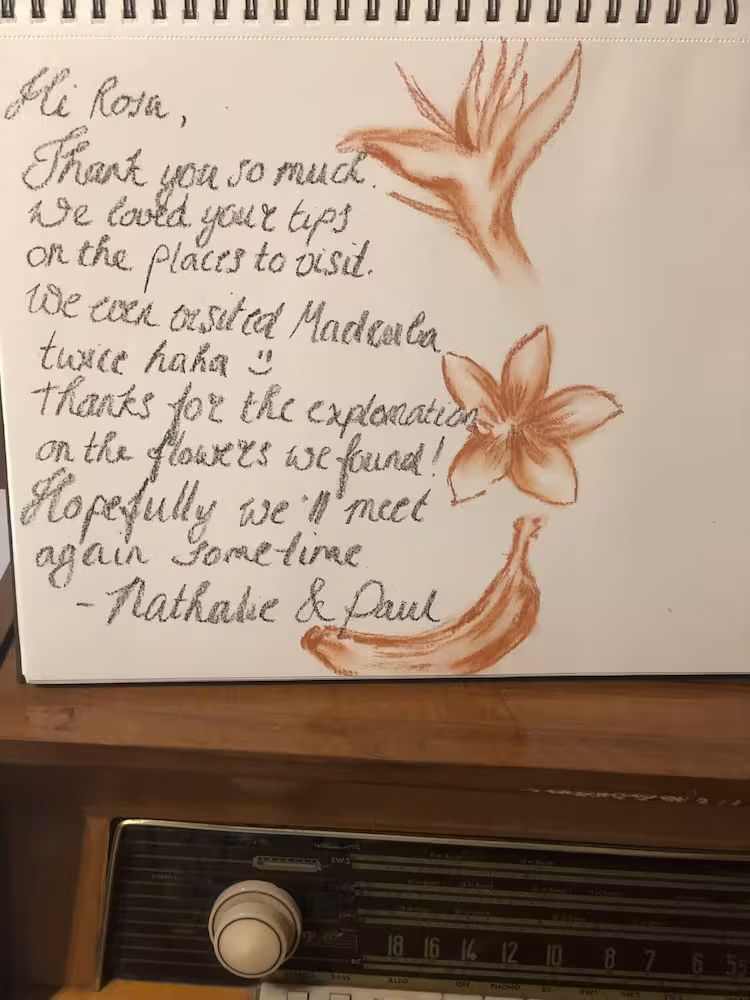 Hi Rosa,
Thank you so much.
We loved your tips
on the places to visit.
We even visited
twice haha :)
Thanks for the explanation
on the flowers we found!
Hopefully we'll meet
again sometime
- Nathalie & Paul
SW.2
18 16 14 12 10 8 7 6
OFF PHONO